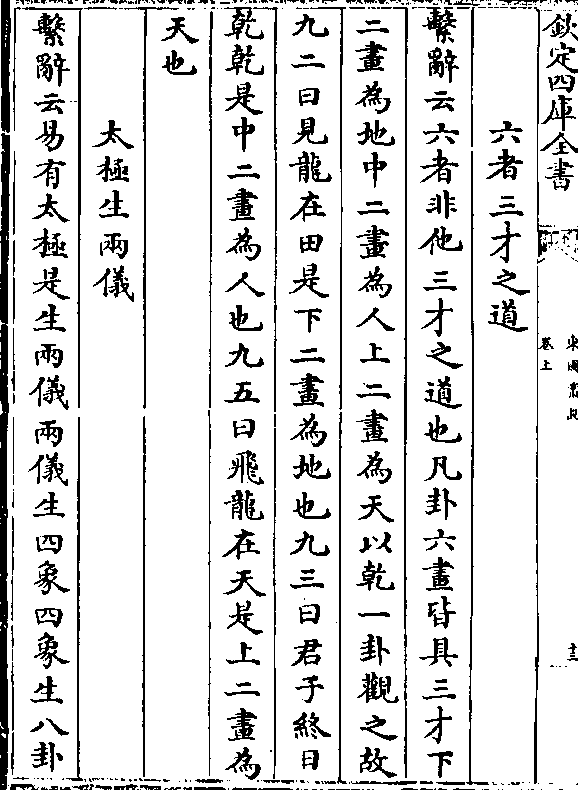 欽定四庫全書
卷上
十三
六者三才之道
繫辭云六者非他三才之道也凡卦六畫皆具三才下
二畫為地中二畫為人上二畫為天以乾一卦觀之故
九二曰見龍在田是下二畫為地也九三曰君子終日
乾乾是中二畫為人也九五曰飛龍在天是上二畫為
天也
太極生兩儀
繫辭云易有太極是生兩儀兩儀生四象四象生八卦